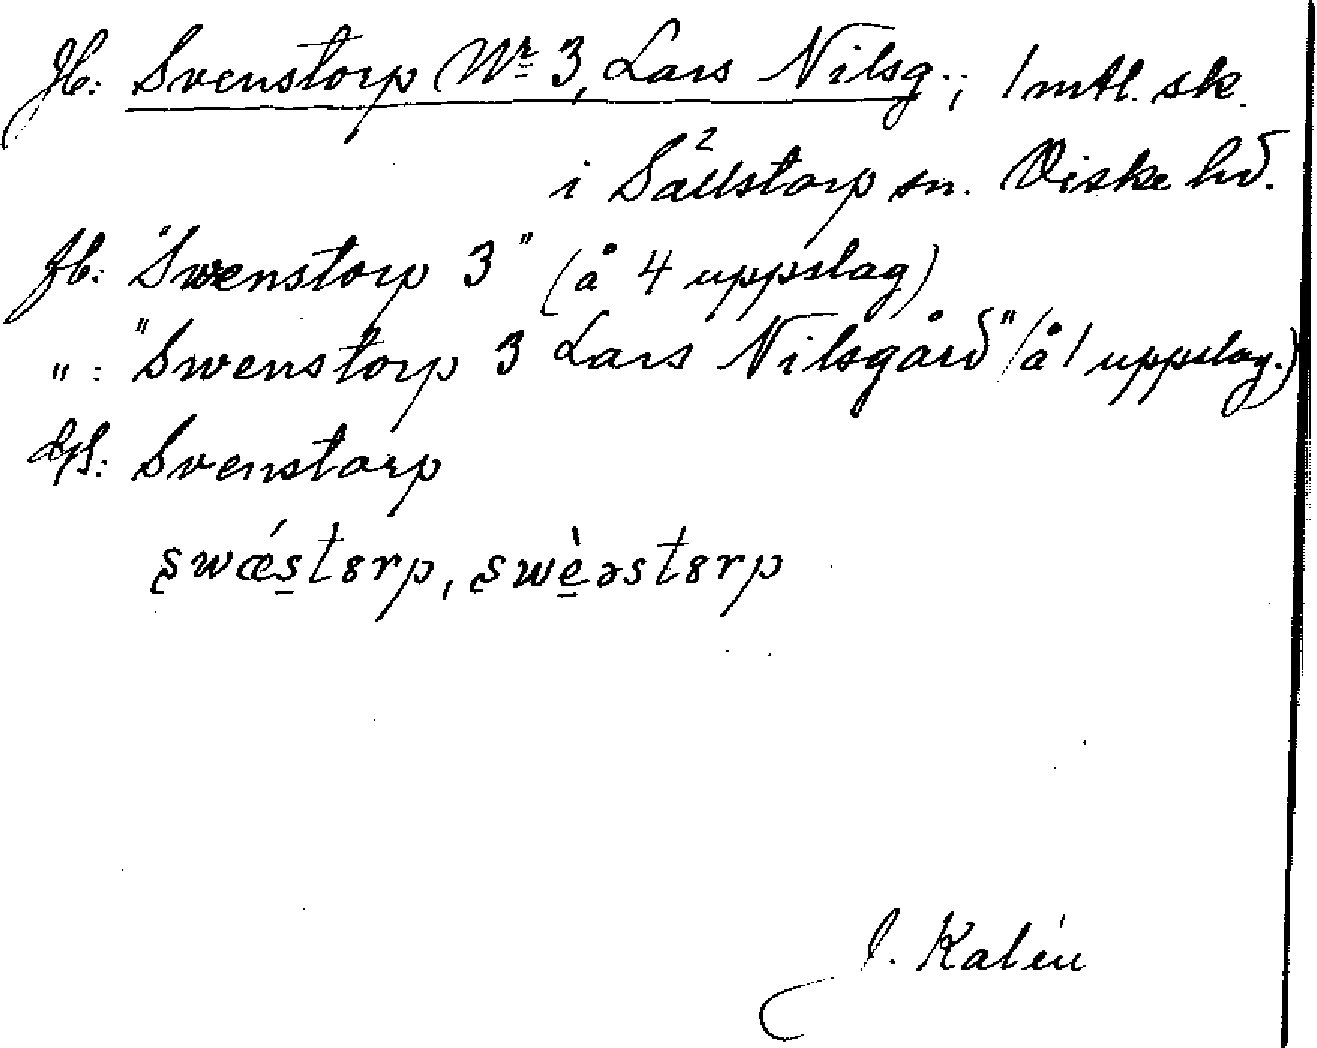 Jb: Svenstorp Nr 3, Lars Nilsg.; 1 mtl. sk.
i Sällstorp sn. Viske hd.
Jb: "Swenstorp 3" (å 4 uppslag)
": "Swenstorp 3 Lars Nilsgård" (å 1 uppslag.)
Svenstorp
swǽstɵrp, swèəstɵrp
J. Kalén